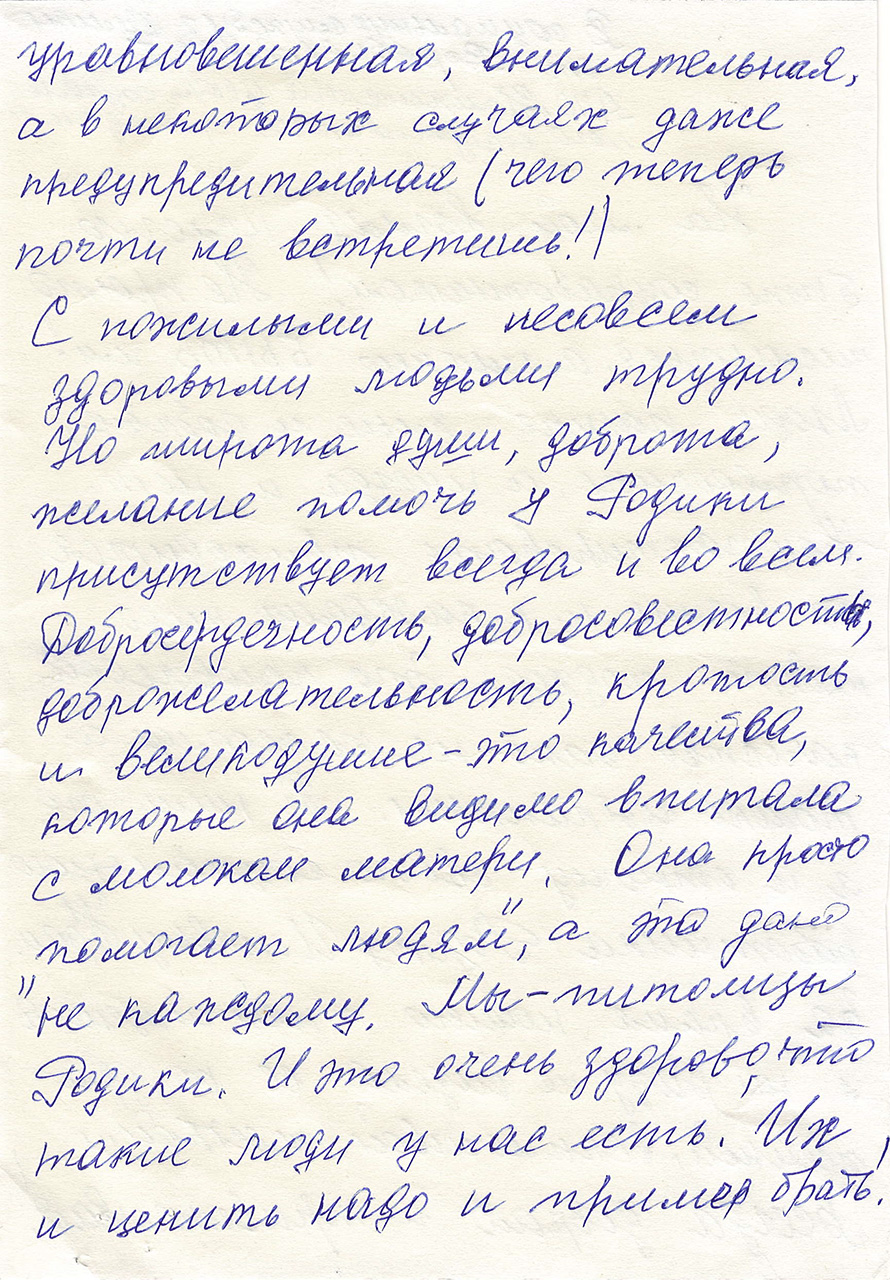 уравновешенная, внимательная,
а в некоторых случаях даже
предупредительная (чего теперь
почти не встретишь!)
С пожилыми и несовсем
здоровыми людьми трудно.
Но широта души, доброта,
желание помочь у Родики
присутствует всегда и во всем.
Добросердечность, добросовестность,
доброжелательность, кротость
и великодушие - это качества,
которые она видимо впитала
с молоком матери. Она просто
"помогает людям", а это дано
не каждому. Мы - питомцы
Родики. И это очень здорово, что
такие люди у нас есть. Их
и ценить надо и пример брать!